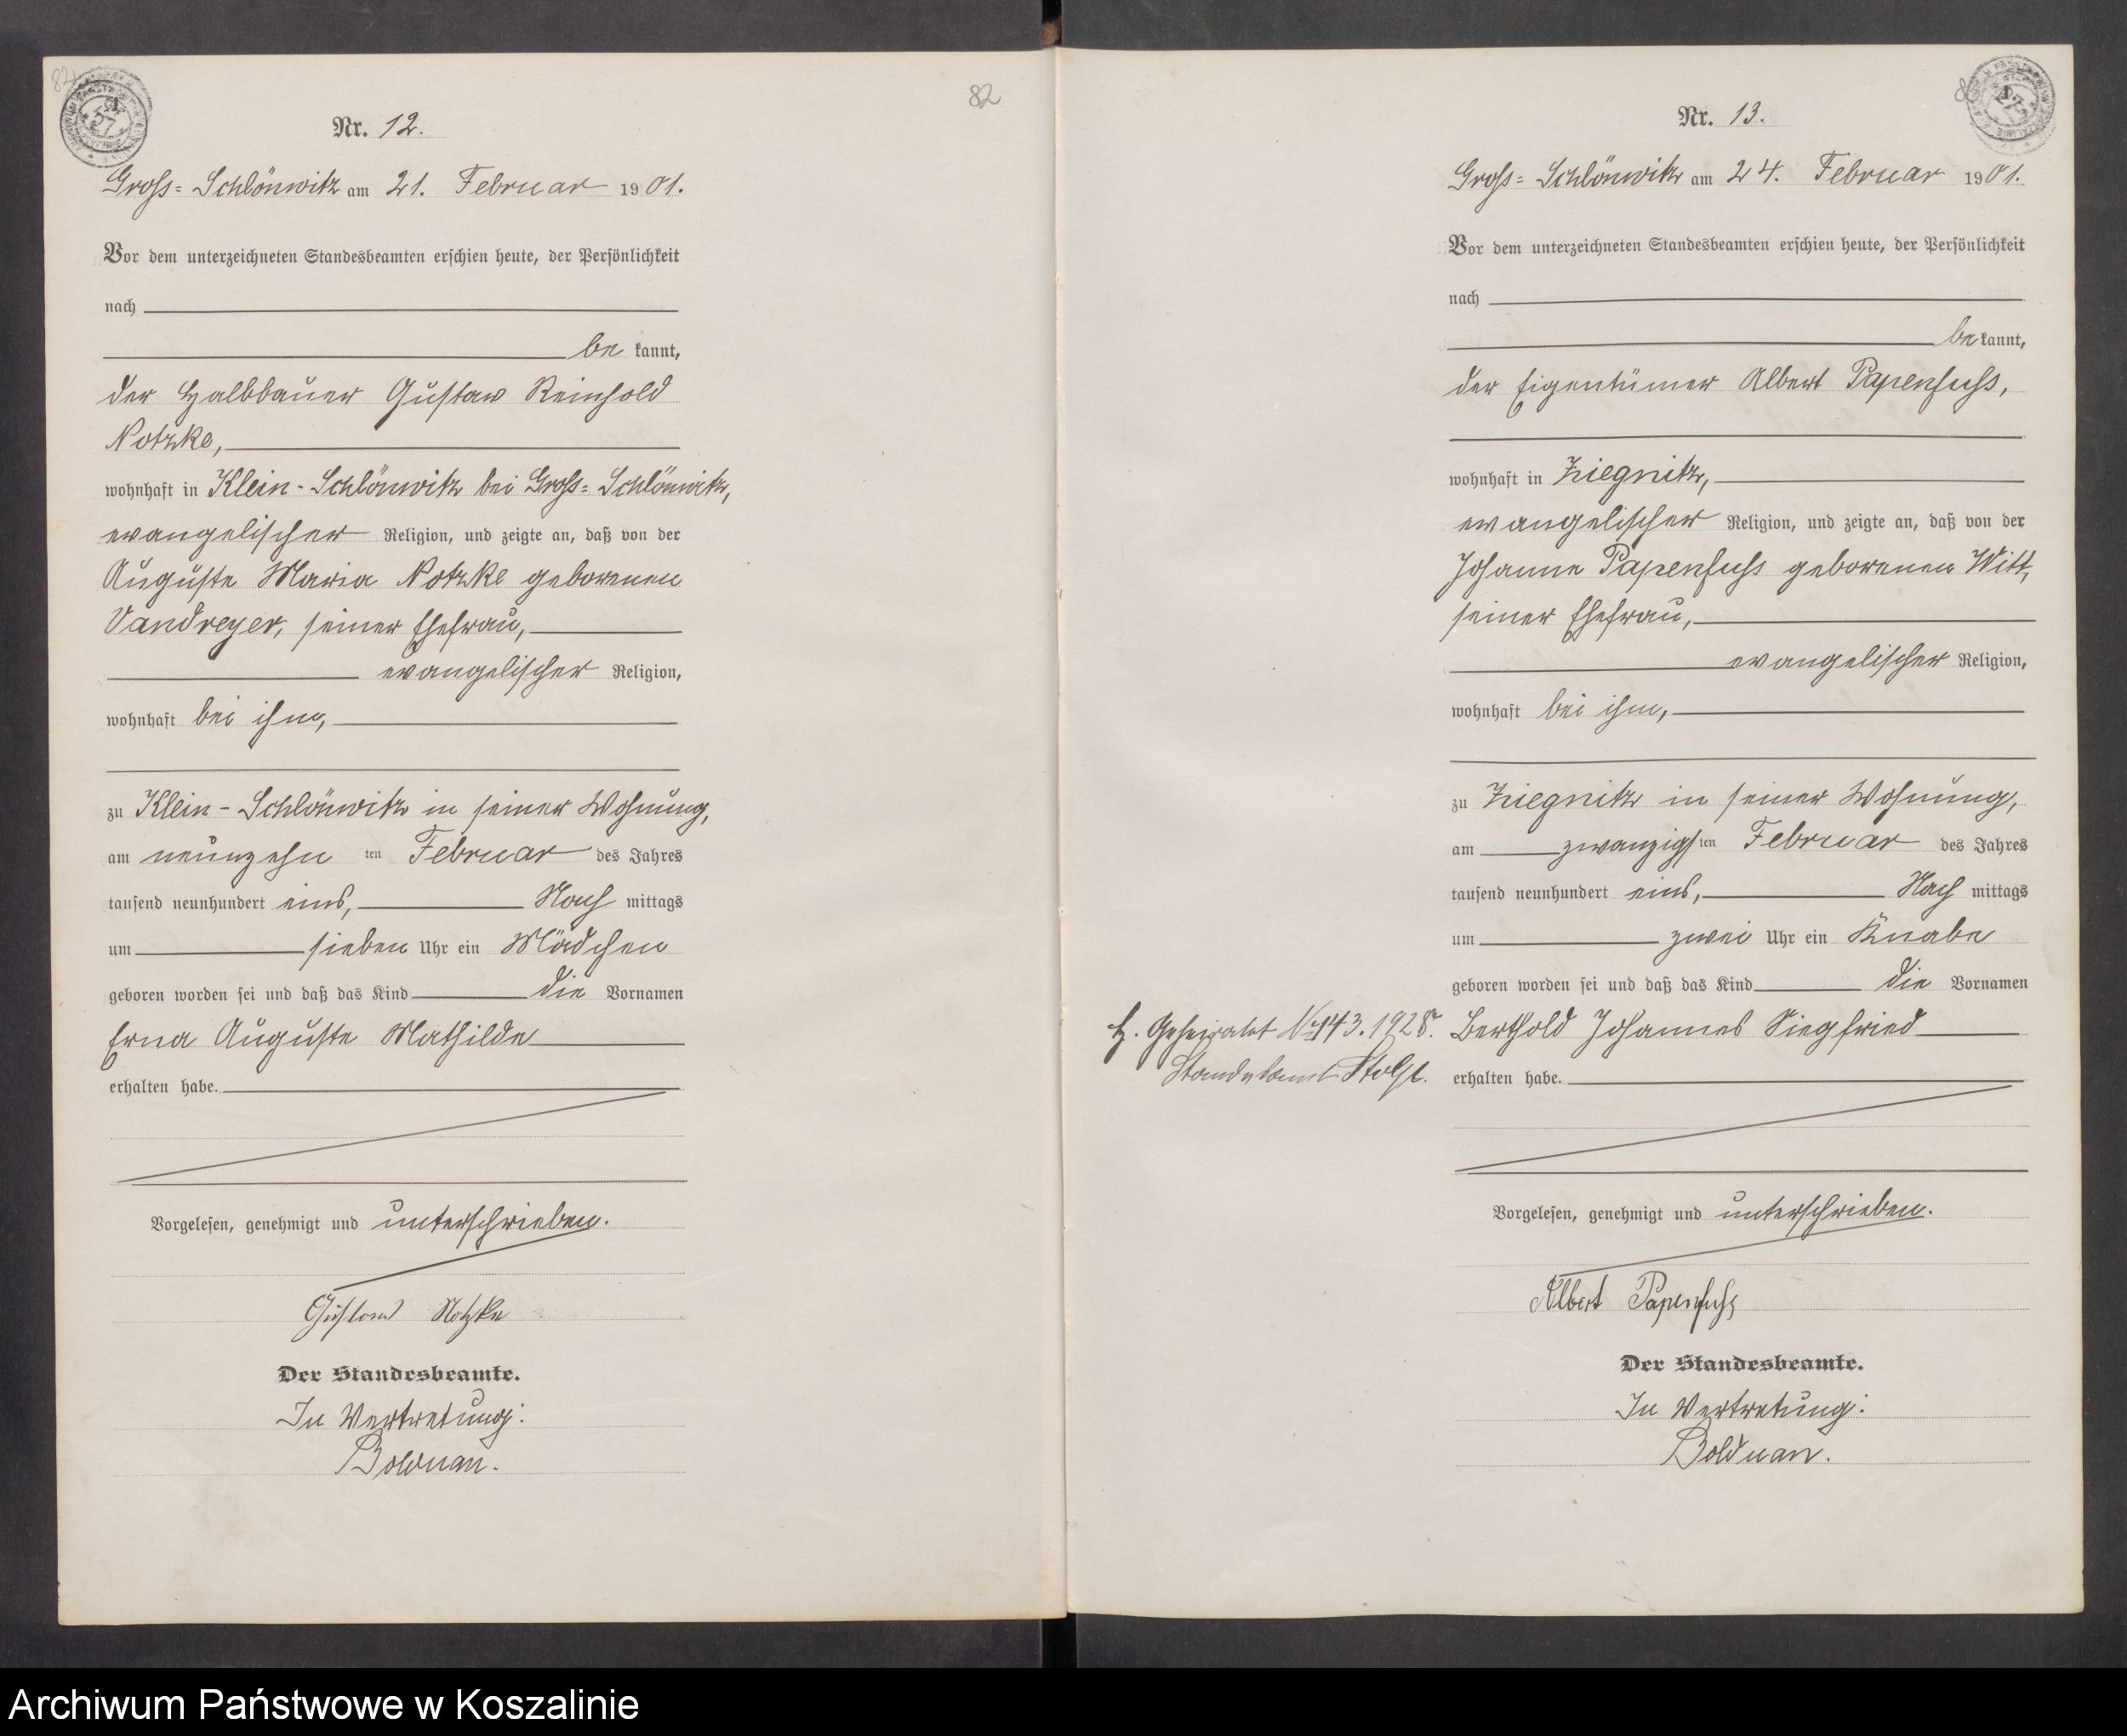 82
Nr. 12.
Gross-Schlönwitz am 21. Februar 1901.
Vor dem unterzeichneten Standesbeamten erschien heute, der Persönlichkeit
nach
be kannt,
der Halbbauer Gustav Reinhold
Notzke,
wohnhaft in Klein-Schlönwitz bei Gross-Schlönwitz,
evangelischer Religion, und zeigte an, daß von der
Auguste Maria Notzke geborenen
Vandreyer, seiner Ehefrau,
evangelischer Religion,
wohnhaft bei ihm,
zu Klein-Schlönwitz in seiner Wohnung,
am neunzehn ten Februar des Jahres
tausend neunhundert eins, Nach mittags
um sieben Uhr ein Mädchen
geboren worden sei und daß das Kind die Vornamen
Erna Auguste Mathilde
erhalten habe.
Vorgelesen, genehmigt und unterschrieben.
Gustav Notzke
Der Standesbeamte.
In Vertretung:
Bolduan.
82
Nr. 13.
Gross-Schlönwitz am 24. Februar 1901.
Vor dem unterzeichneten Standesbeamten erschien heute, der Persönlichkeit
nach
bekannt,
der Eigentümer Albert Papenfuss,
wohnhaft in Ziegnitz,
evangelischer Religion, und zeigte an, daß von der
Johanne Papenfuss geborenen Witt,
seiner Ehefrau,
evangelischer Religion,
wohnhaft bei ihm,
zu Ziegnitz in seiner Wohnung,
am zwanzigsten Februar des Jahres
tausend neunhundert eins, Nach mittags
um zwei Uhr ein Knabe
geboren worden sei und daß das Kind die Vornamen
Berthold Johannes Siegfried
erhalten habe.
Vorgelesen, genehmigt und unterschrieben.
Albert Papenfuss
Der Standesbeamte.
In Vertretung:
Bolduan.
H. Geheiratet Nr 143. 1928.
Standesamt Stolp.
Archiwum Państwowe w Koszalinie